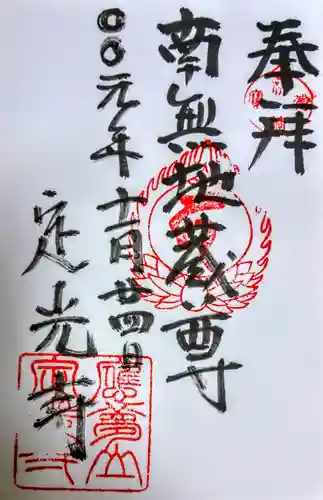 奉拝
南無地蔵尊
〇〇元年十一月廿四日
定光寺
應夢山